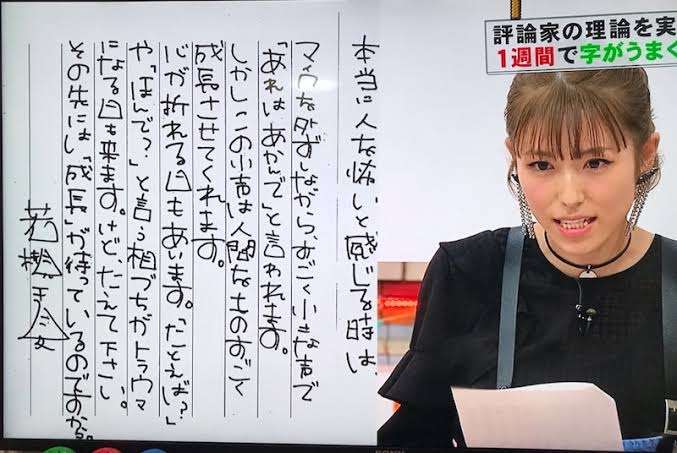 評論家の理論を実
1週間で字がうまく
本当に人を怖いと感じる時は、
マイクを外ずしながら、すごく小さな声で
「あれはあかんで」と言われます。
しかしこの小声は人間をものすごく
成長させてくれます。
心が折れる日もあります。「たとえば?」
や「ほんで?」と言う相づちがトラウマ
になる日も来ます。けど、たえて下さい。
その先には「成長」が待っているのですから。
若槻